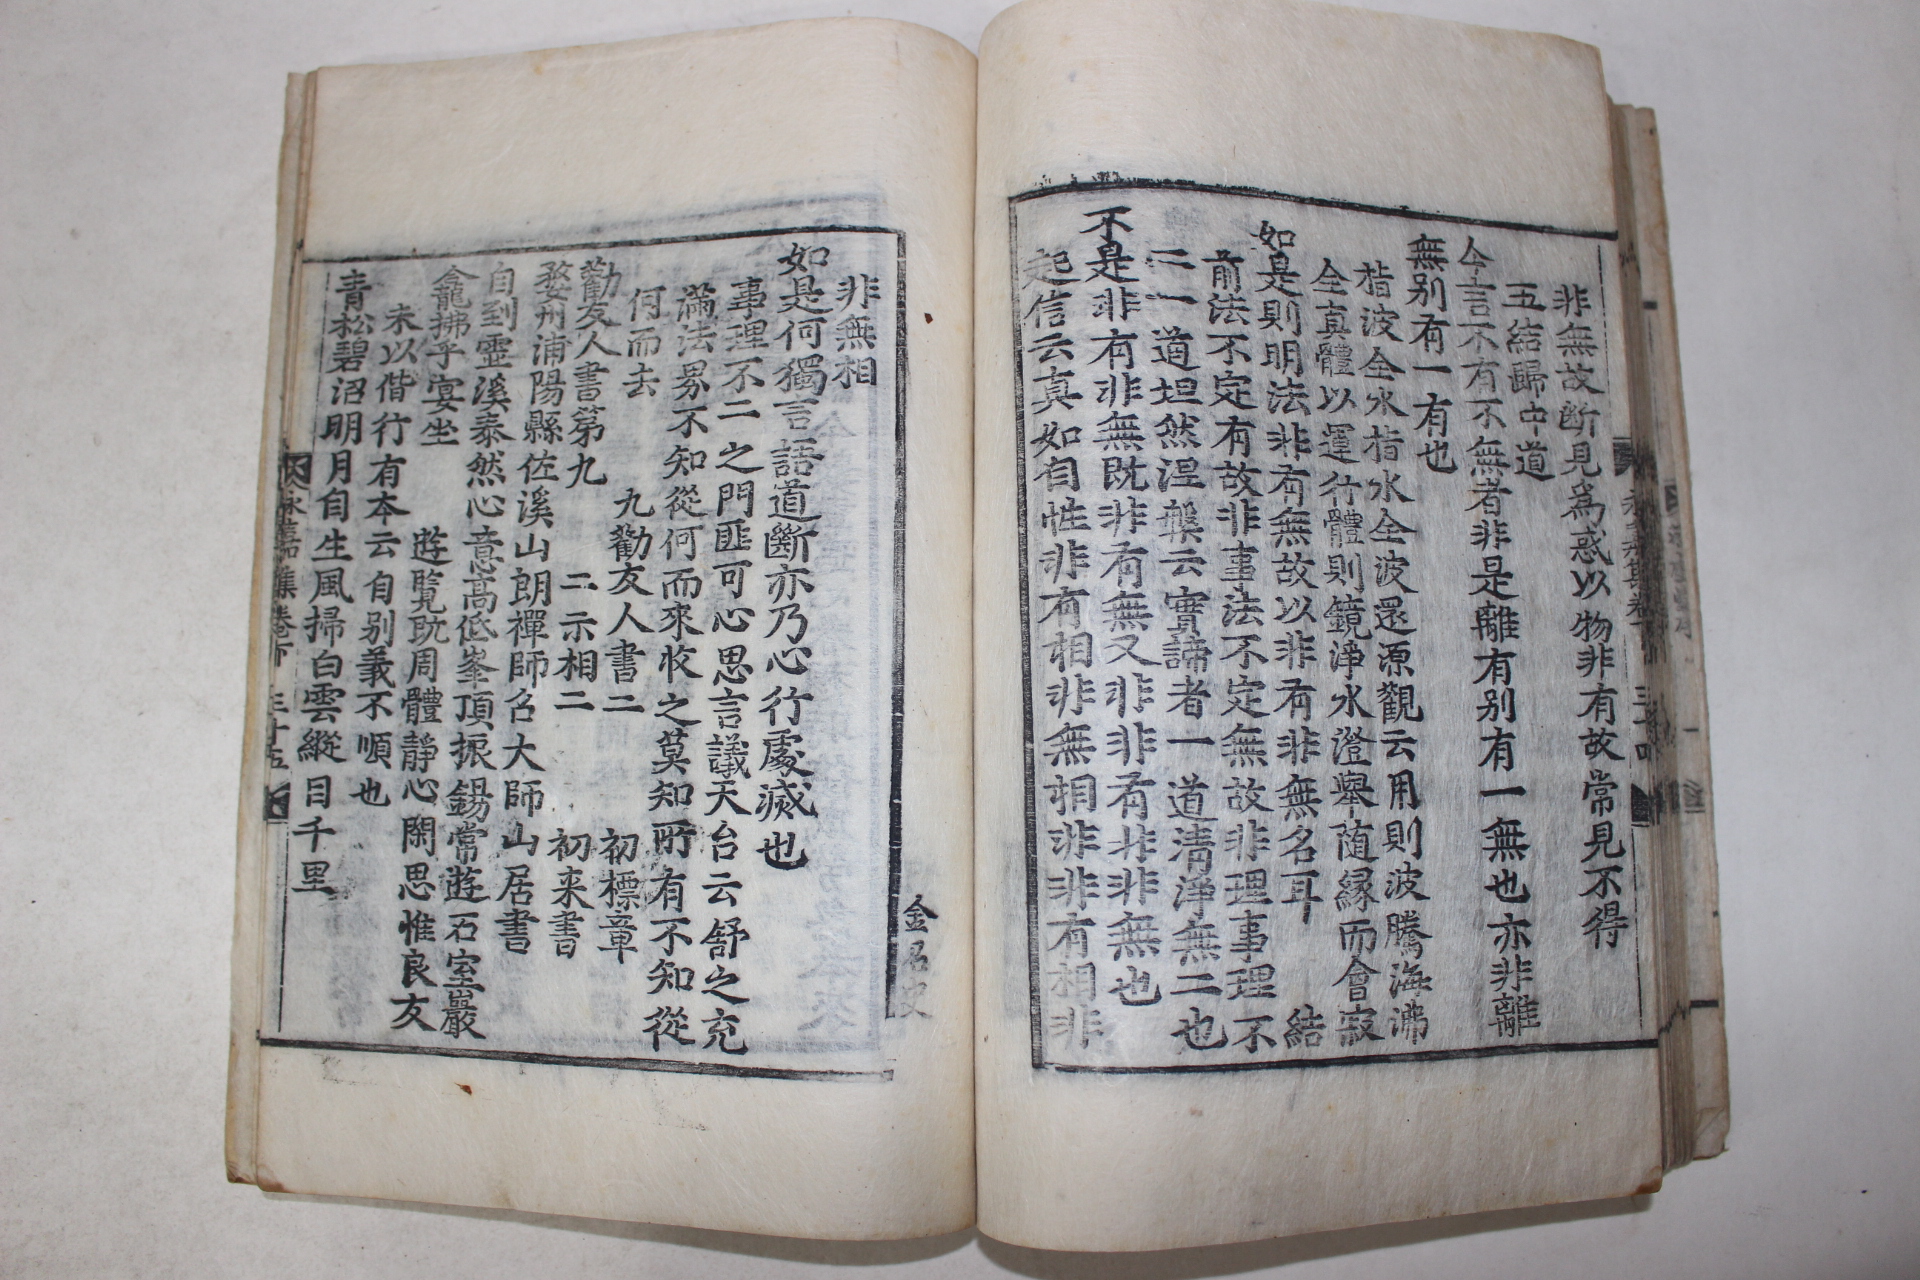 非無故斷見爲惑以物非有故常見不得
五結歸中道
今言不有不無者非是離有别有一無也亦非離
無别有一有也
指波全水指水全波還源觀云用則波騰海沸
全真體以運行體則鏡淨水澄舉随縁而會寂
如是則明法非有無故以非有非無名耳 結
前法不定有故非事法不定無故非理事理不
二一道坦然湼槃云實諦者一道清淨無二也
不是非有非無既非有無又非非有非非無也
起信云真如自性非有相非無相非非有相非
非無相
如是何獨言語道斷亦乃心行處滅也
事理不二之門匪可心思言議天台云舒之充
滿法界不知從何而來收之莫知所有不知從
何而去
九勸友人書二 初標章
勸友人書第九 二示相二 初来書
婺州浦陽縣佐溪山朗禪師召大師山居書
自到靈溪泰然心意高低峯頂振錫常遊石室巖
龕龍拂乎宴坐 遊覧旣周體靜心閑思惟良友
未以偕行有本云自别義不順也
青松碧沼明月自生風掃白雲縱目千里
永嘉集卷下 三十五
金召史